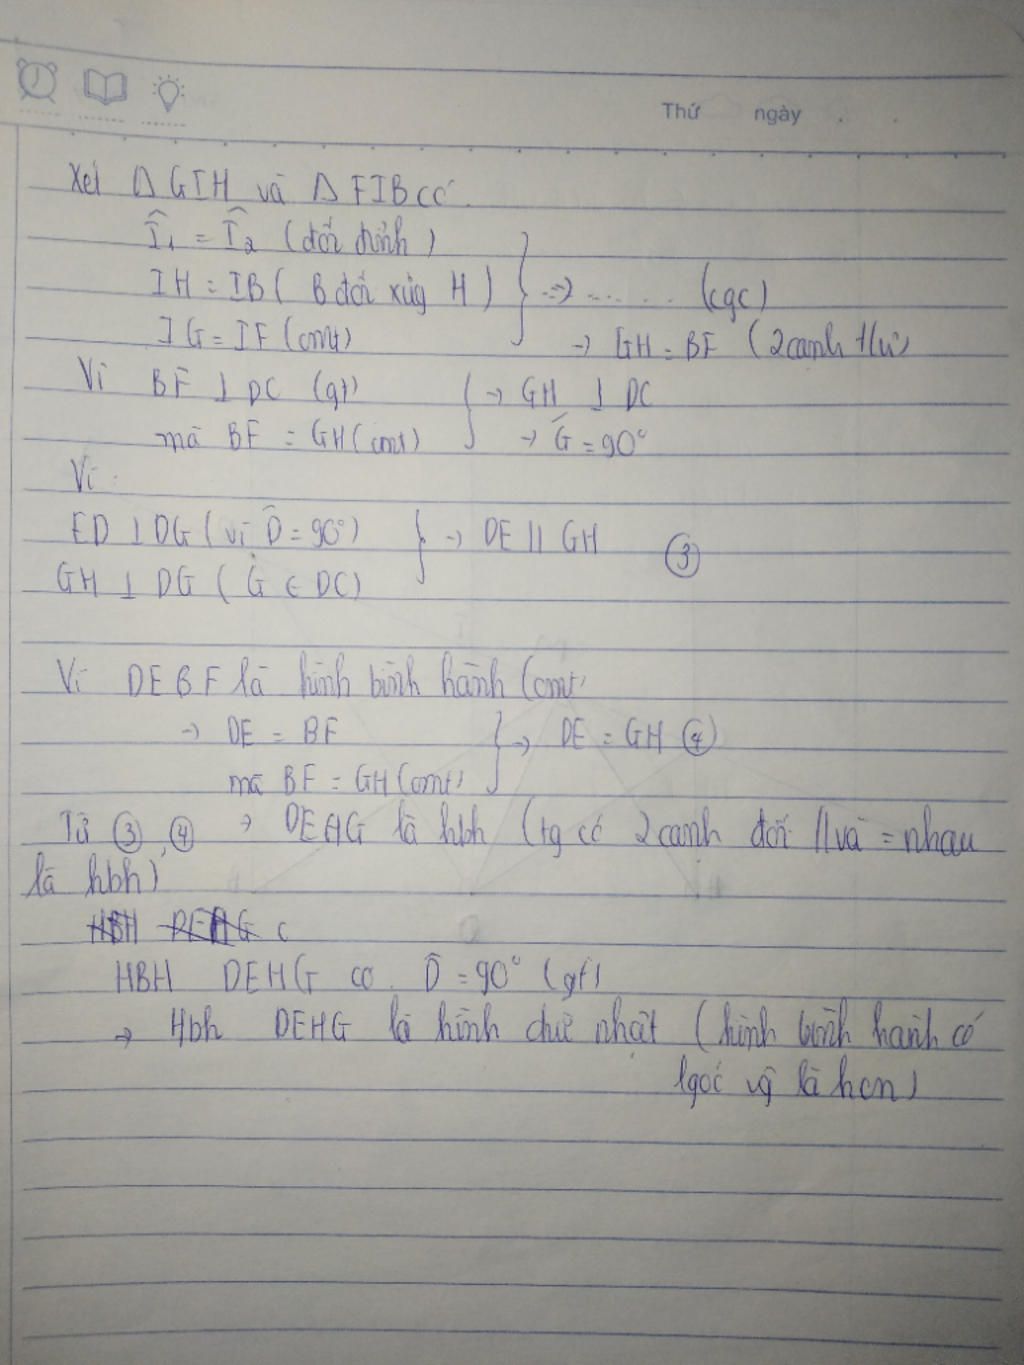 Thứ ngày
Xét Δ GIH và Δ FIB có
Î₁ = Î₂ (đối đỉnh)
IH = IB ( B đối xứg H ) } => ...... (cgc)
IG = IF (cmt) → GH = BF (2 cạnh t/ư)
Vì BF ⊥ DC (gt) } → GH ⊥ DC
mà BF = GH (cmt) → Ĝ = 90°
Vì
ED ⊥ DG ( vì D̂ = 90°) } → DE // GH ③
GH ⊥ DG ( G ∈ DC)
Vì DEBF là hình bình hành (cmt)
→ DE = BF } → DE = GH ④
mà BF = GH (cmt)
Từ ③, ④ → DEHG là hbh (tg có 2 cạnh đối // và = nhau
là hbh)
HBH DEHG c
HBH DEHG có D̂ = 90° (gt)
→ Hbh DEHG là hình chữ nhật ( hình bình hành có
1 góc vg là hcn)